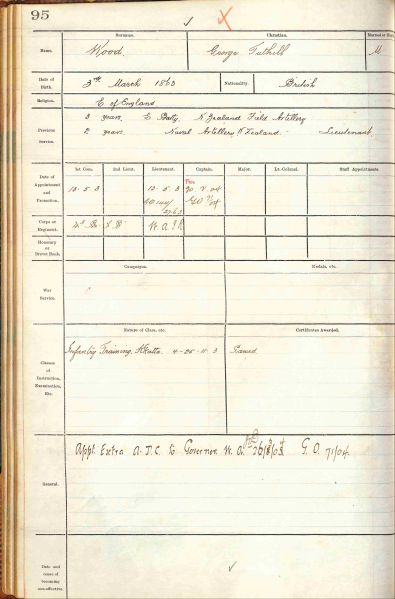 95
Surname.
Christian.
Married or
Name.
Wood
George Tuthill
M
Date of Birth.
3rd March 1863
Nationality.
British
Religion.
C of England
Previous Service.
3 years, E Batty, N Zealand Field Artillery
2 years Naval Artillery N Zealand. - Lieutenant
Date of Appointment and Promotion.
1st Com.
2nd Lieut.
Lieutenant.
Captain.
Major.
Lt.-Colonel.
Staff Appointments.
13.5.3
13.5.3
Corps or Regiment.
Honorary or Brevet Rank.
War Service.
Campaigns.
Medals, etc.
Classes of Instruction, Examination, Etc.
Nature of Class, etc.
Certificates Awarded.
Infantry Training, 4-25-11-3
Passed
General.
Appt. Extra A.D.C. to Governor W. A. G. O. 71/04.
Date and cause of becoming non-effective.